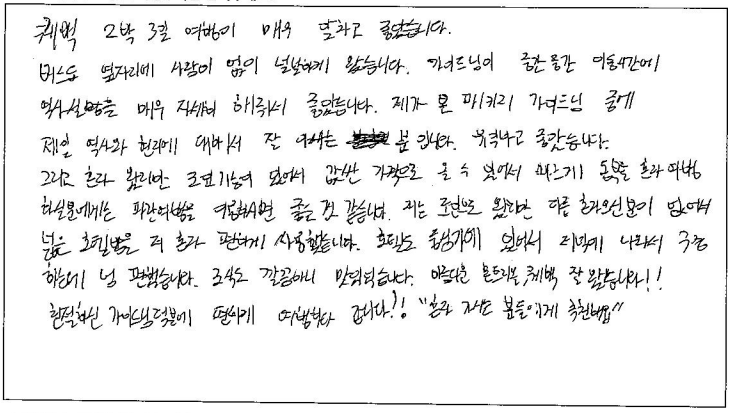 퀘벡 2박 3일 여행이 매우 알차고 좋았습니다.
버스도 옆자리에 사람이 없이 널널하게 왔습니다. 가이드님이 중간중간 이동시간에
역사설명을 매우 자세히 해주셔서 좋았습니다. 제가 본 패키지 가이드님 중에
제일 역사와 현지에 대해서 잘 아시는 분 입니다. 유익하고 좋았습니다.
그리고 혼자 왔지만 조인기능이 있어서 값싼 가격으로 올 수 있어서 혼자여행
하실분에게는 파란여행을 이용하시면 좋을 것 같습니다. 저는 조인으로 왔지만 다른 혼자오신분이 없어서
넓은 호텔방을 저 혼자 편하게 사용했습니다. 호텔도 중심가에 있어서 저녁에 나와서 구경
하는데 넘 편했습니다. 조식도 깔끔하니 맛있었습니다. 아름다운 몬트리올, 퀘벡 잘 보았습니다!!
친절하신 가이드님덕분에 편하게 여행하다 갑니다!! "혼자 가시는 분들에게 추천해요"